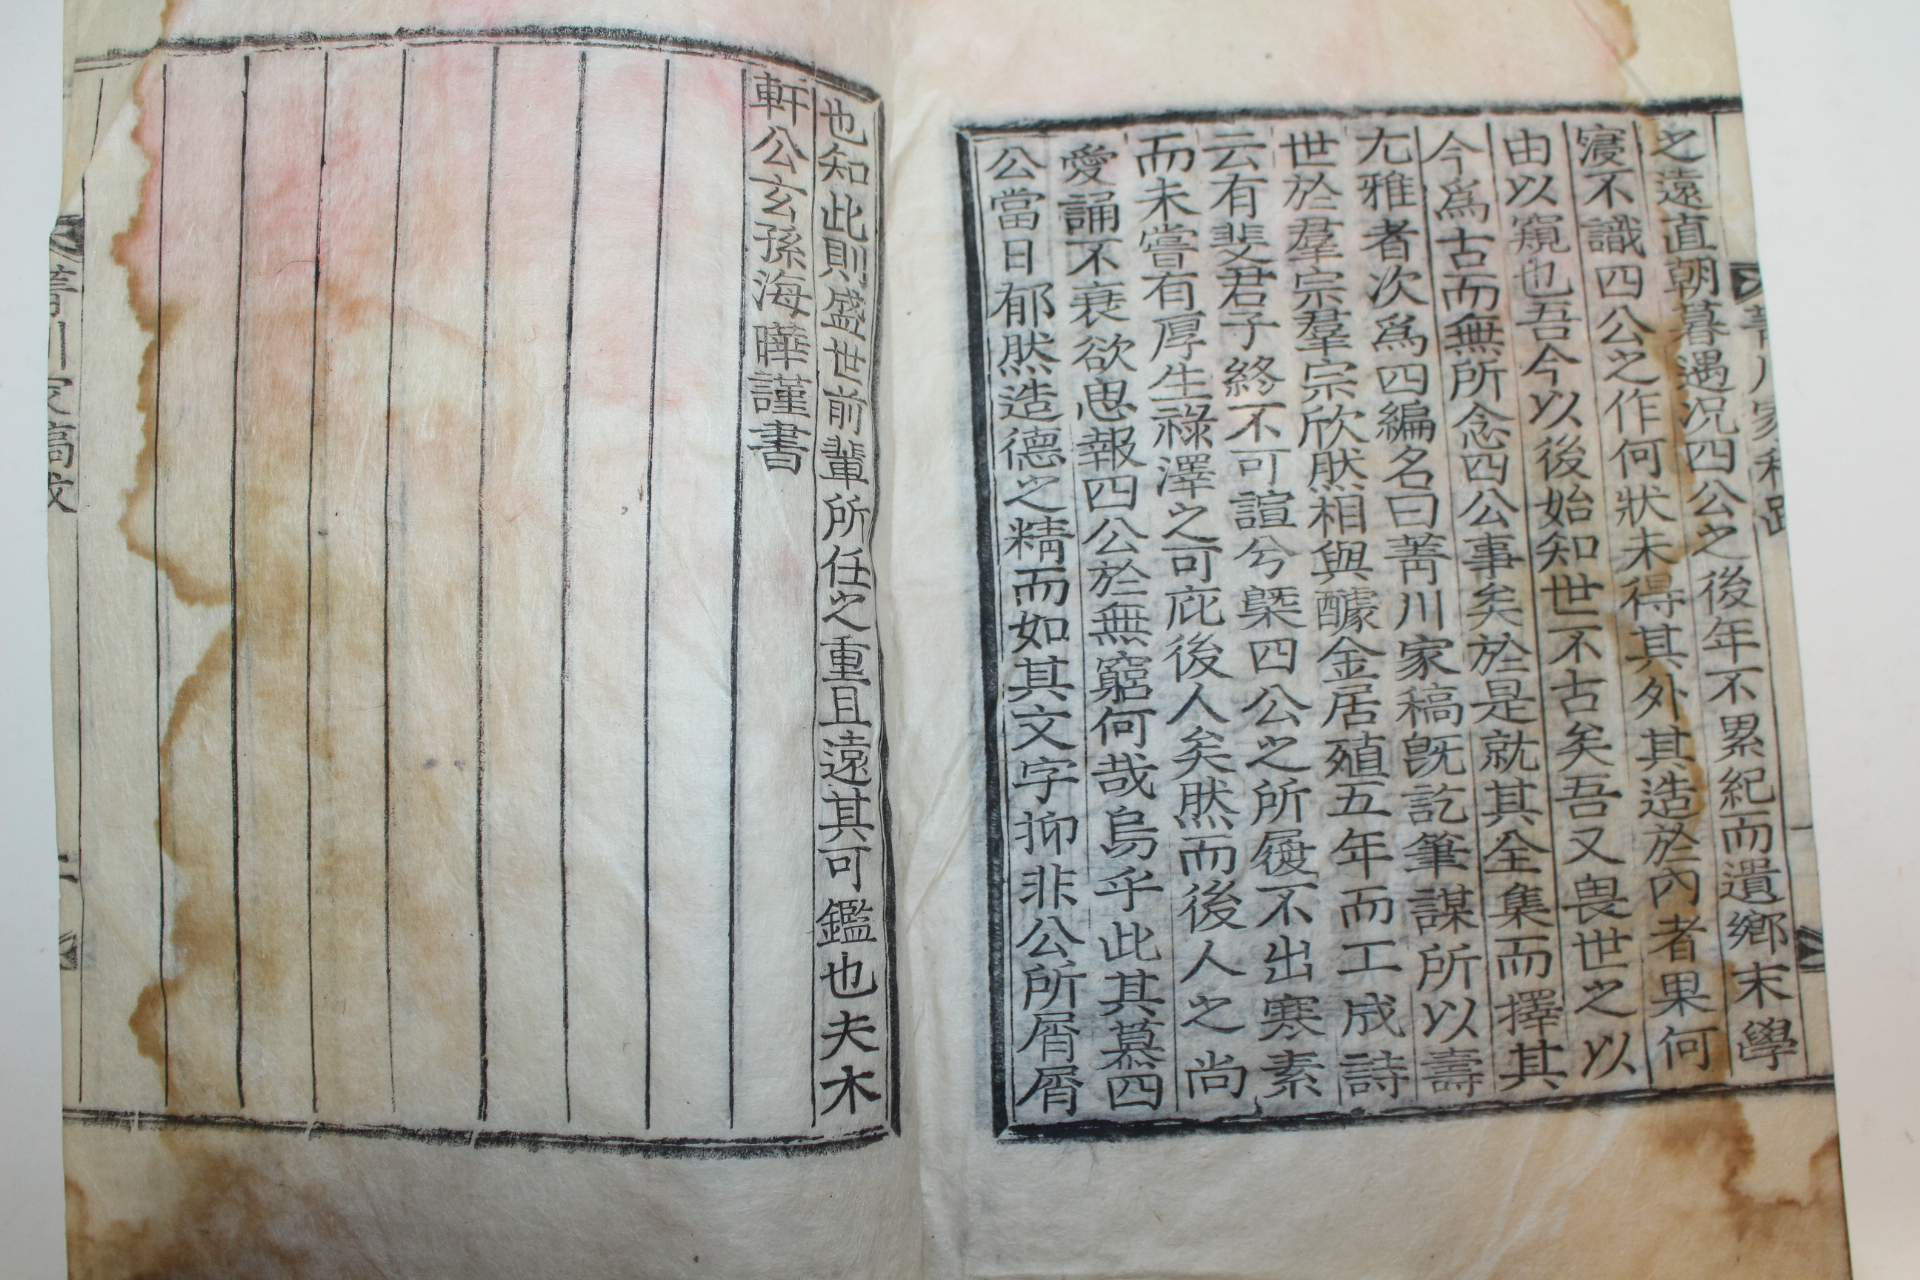 之遠直朝暮遇况四公之後年不累紀而遺鄉末學
寖不識四公之作何狀未得其外其造於內者果何
由以窺也吾今以後始知世不古矣吾又畏世之以
今爲古而無所念四公事矣於是就其全集而擇其
尤雅者次爲四編名曰菁川家稿旣訖筆謀所以壽
世於羣宗羣宗欣然相與醵金居殖五年而工成詩
云有斐君子終不可諠兮槩四公之所屐不出寒素
而未嘗有厚生祿澤之可庇後人矣然而後人之尚
愛誦不衰欲思報四公於無窮何哉烏乎此其慕四
公當日郁然造德之精而如其文字抑非公所屑屑
也知此則盛世前輩所任之重且遠其可鑑也夫木
軒公玄孫海曄謹書
菁川家稿跋